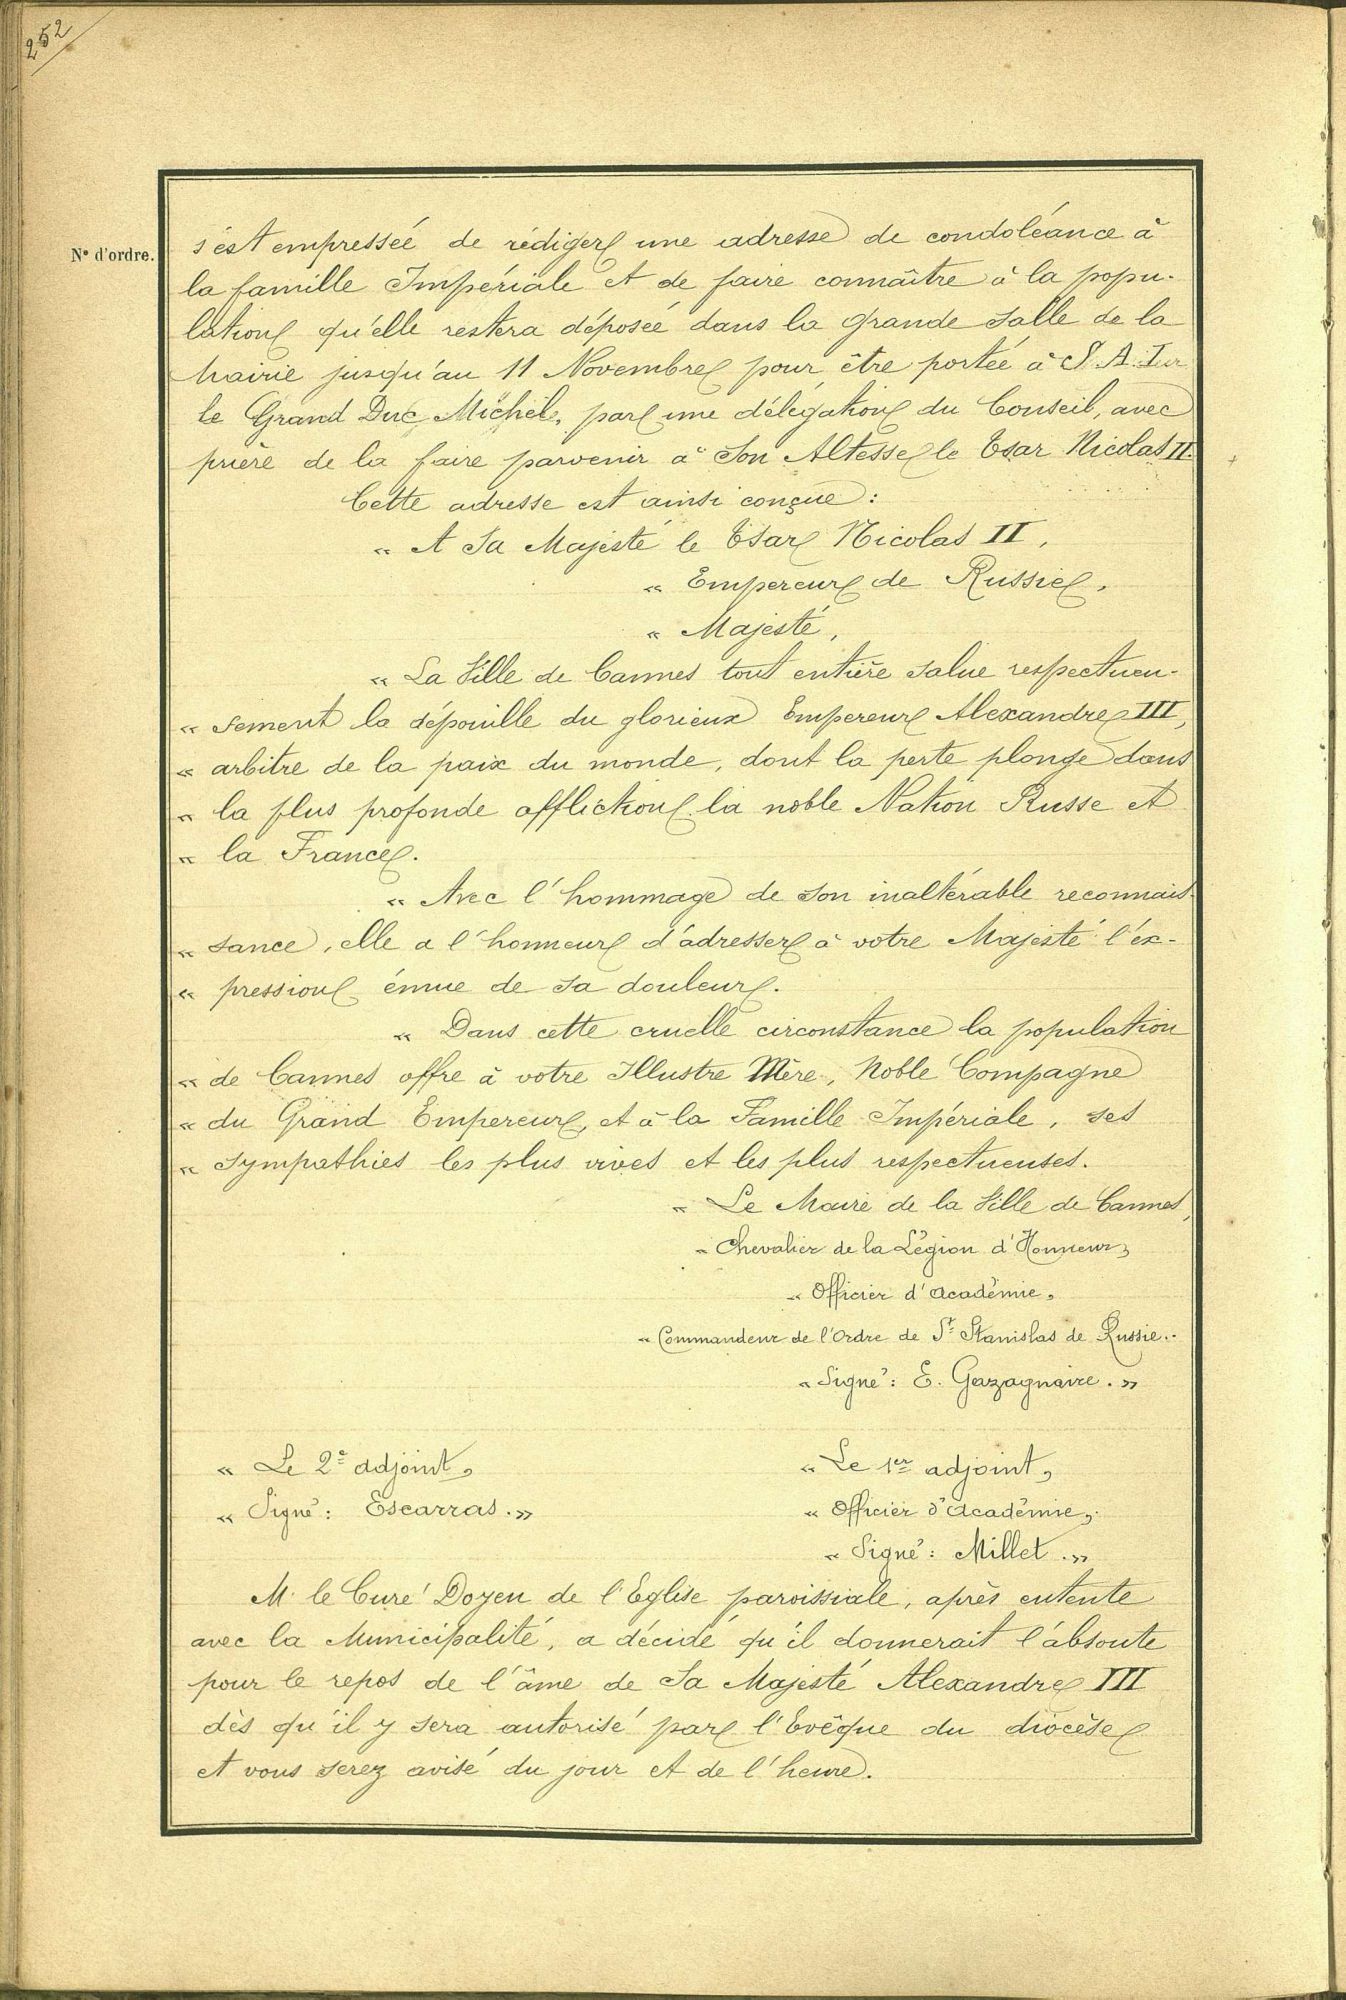 252
N° d'ordre.
s'est empressée de rédiger une adresse de condoléance à
la famille Impériale et de faire connaître à la popu-
lation qu'elle restera déposée dans la grande salle de la
Mairie jusqu'au 11 Novembre pour être portée à S. A. I.
le Grand Duc Michel, par une délégation du Conseil, avec
prière de la faire parvenir à Son Altesse le Tsar Nicolas II.
Cette adresse est ainsi conçue :
" A Sa Majesté le Tsar Nicolas II,
" Empereur de Russie,
" Majesté,
" La Ville de Cannes tout entière salue respectueu-
" sement la dépouille du glorieux Empereur Alexandre III,
" arbitre de la paix du monde, dont la perte plonge dans
" la plus profonde affliction la noble Nation Russe et
" la France.
" Avec l'hommage de son inaltérable reconnais-
" sance, elle a l'honneur d'adresser à votre Majesté l'ex-
" pression émue de sa douleur.
" Dans cette cruelle circonstance la population
" de Cannes offre à votre Illustre Mère, Noble Compagne
" du Grand Empereur, et à la Famille Impériale, ses
" sympathies les plus vives et les plus respectueuses.
" Le Maire de la Ville de Cannes,
" Chevalier de la Légion d'Honneur,
" Officier d'Académie,
" Commandeur de l'Ordre de St Stanislas de Russie.
" Signé : E. Gazagnaire. "
" Le 2e adjoint,
" Signé : Escarras. "
" Le 1er adjoint,
" Officier d'Académie,
" Signé : Millet. "
M. le Curé Doyen de l'Eglise paroissiale, après entente
avec la Municipalité, a décidé qu'il donnerait l'absoute
pour le repos de l'âme de Sa Majesté Alexandre III
dès qu'il y sera autorisé par l'Evêque du diocèse
et vous serez avisé du jour et de l'heure.